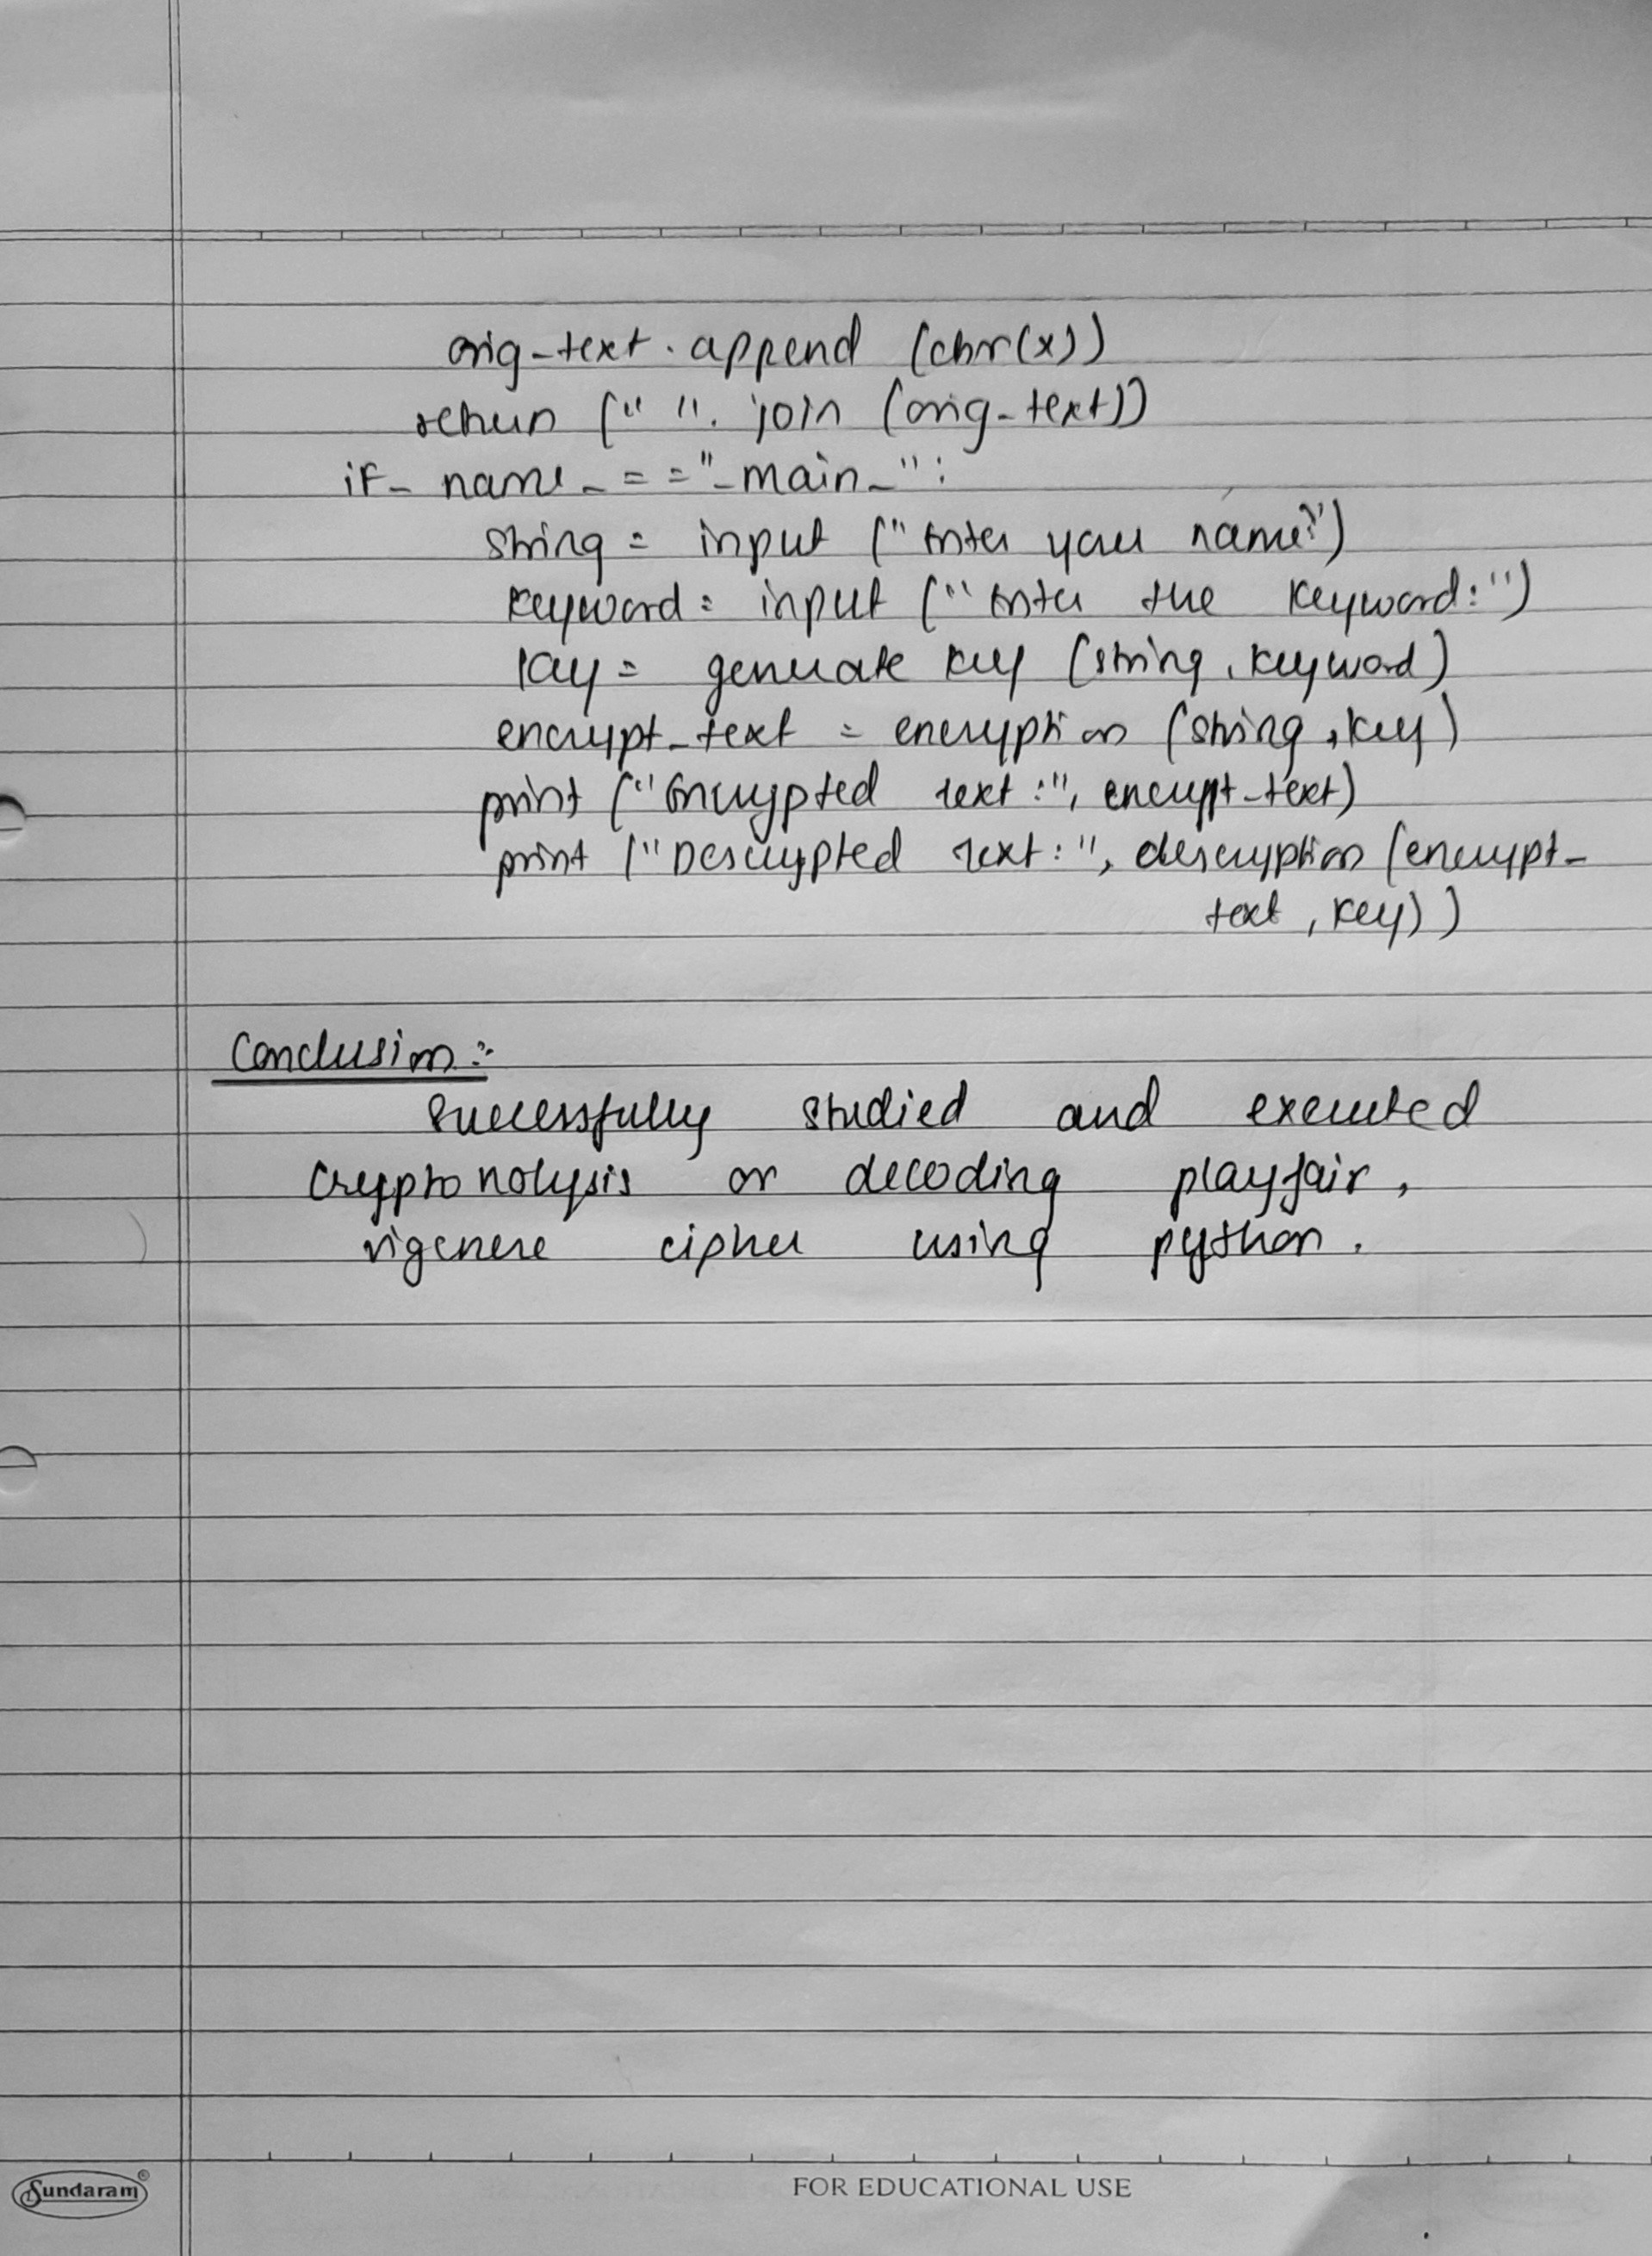 orig_text. append (chr(x))
return (" ". join (orig_text))
if _ name _ == "_main_":
string = input ("Enter your name:")
keyword = input ("Enter the keyword:")
key = generate key (string, keyword)
encrypt_text = encryption (string, key)
print ("Encrypted text:", encrypt_text)
print ("Descrypted text:", descryption (encrypt_
text, key))
Conclusion:-
Successfully studied and executed
Cryptonolysis or decoding playfair,
vigenere cipher using python.
Sundaram®
FOR EDUCATIONAL USE